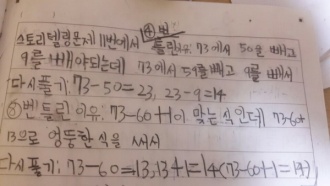 스토리텔링문제 11번에서 ④번
틀린이유: 73에서 50을 빼고
9를 빼야되는데 73에서 59를빼고 9를 빼서
다시풀기: 73-50=23, 23-9=14
⑤번 틀린 이유: 73-60+1이 맞는 식인데 73-6+
13으로 엉뚱한 식을 써서
다시풀기: 73-60=13, 13+1=14(73-60+1=14)